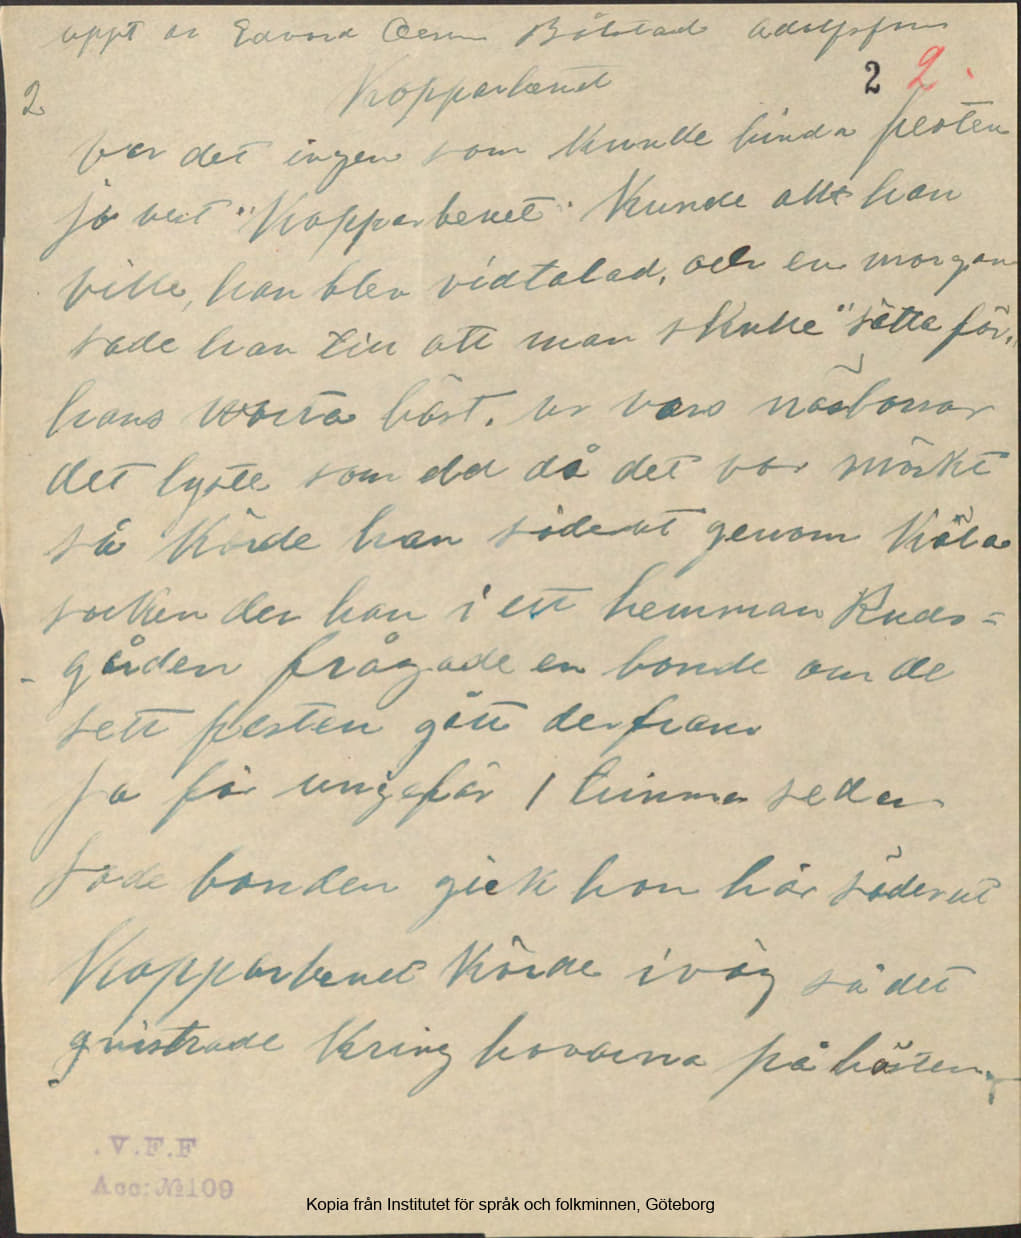 uppt av Edvard Olsson Båstad Adolfsfors
2 Kopparbenet 2 2.
var det ingen som kunde binda pesten
jo vest "Kopparbenet" kunde allt han
ville, han blev vidtalad, och en morgon
sade han till att man skulle "sätta för"
hans svarta häst. ur vars näsborrar
det lyste som eld då det var mörkt
så körde han söderut genom Köla
socken der han i ett hemman Ruds-
gården frågade en bonde om de
sett pesten gått derfram
Ja för ungefär 1 timma sedan
sade bonden gick hon här söderut
Kopparbenet körde iväg så det
gnistrade kring hovarna på hästen,
.V.F.F
Acc: № 109
Kopia från Institutet för språk och folkminnen, Göteborg